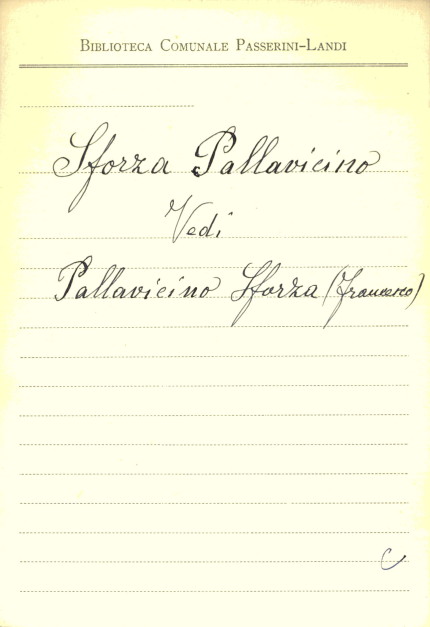 BIBLIOTECA COMUNALE PASSERINI-LANDI
Sforza Pallavicino
Vedi
Pallavicino Sforza (Francesco)
C